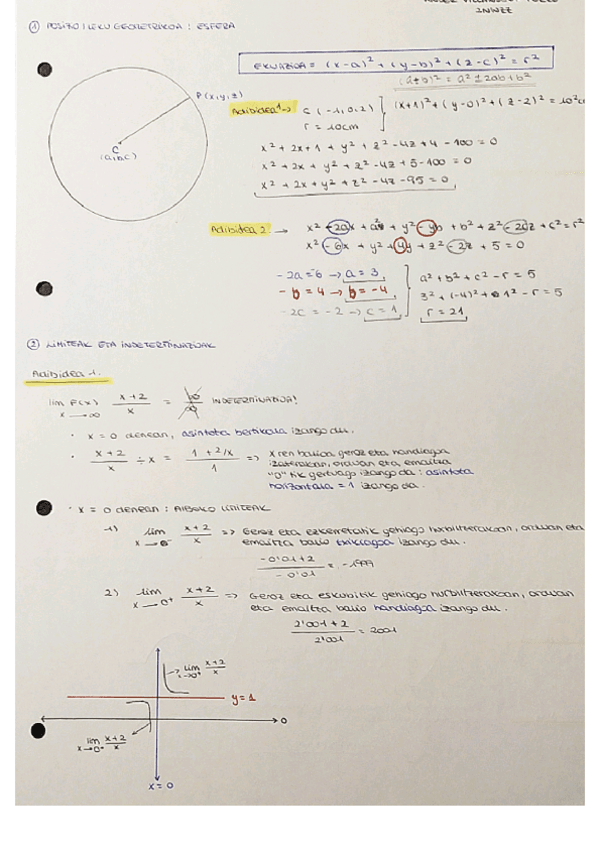 INWEZ
① POSIZIO / LEKU GEOMETRIKOA : ESFERA
EKUAZIOA = (x-a)² + (y-b)² + (z-c)² = r²
(a±b)² = a² ± 2ab + b²
P(x,y,z)
C
(a,b,c)
Adibidea 1 → C (-1,0,2) (x+1)² + (y-0)² + (z-2)² = 10²
r = 10cm
x² + 2x + 1 + y² + z² - 4z + 4 - 100 = 0
x² + 2x + y² + z² - 4z + 5 - 100 = 0
x² + 2x + y² + z² - 4z - 95 = 0
Adibidea 2 → x² - 2ax + a² + y² - yb + b² + z² - 2cz + c² = r²
x² - 6x + y² + 4y + z² - 2z + 5 = 0
-2a = -6 → a = 3 a² + b² + c² - r = 5
- b = 4 → b = -4 3² + (-4)² + 1² - r = 5
-2c = -2 → c = 1 r = 21
② LIMITEAK ETA INDETERMINAZIOAK
Adibidea 1.
lim F(x) x+2/x = ∞/∞ INDETERMINAZIOA!
x → ∞
· x = 0 denean, asintota bertikala izango du.
· x+2/x ÷ x = 1 + 2/x / 1 => x ren balioa geroz eta handiagoa
izaterakoan, orduan eta emaitza
"0" tik gertuago izango da : asintota
horizontala = 1 izango da.
· x = 0 denean : ALBOKO LIMITEAK
1) lim x→0⁻ x+2/x => Geroz eta ezkerretatik gehiago hurbiltzerakoan, orduan eta
emaitza balio txikiagoa izango du.
-0'01+2 / -0'01 = -1999
2) lim x→0⁺ x+2/x => Geroz eta eskubitik gehiago hurbiltzerakoan, orduan
eta emaitza balio handiagoa izango du.
2'001+2 / 2'001 = 2001
lim x→0⁺ x+2/x
y = 1
0
lim x→0⁻ x+2/x
x = 0